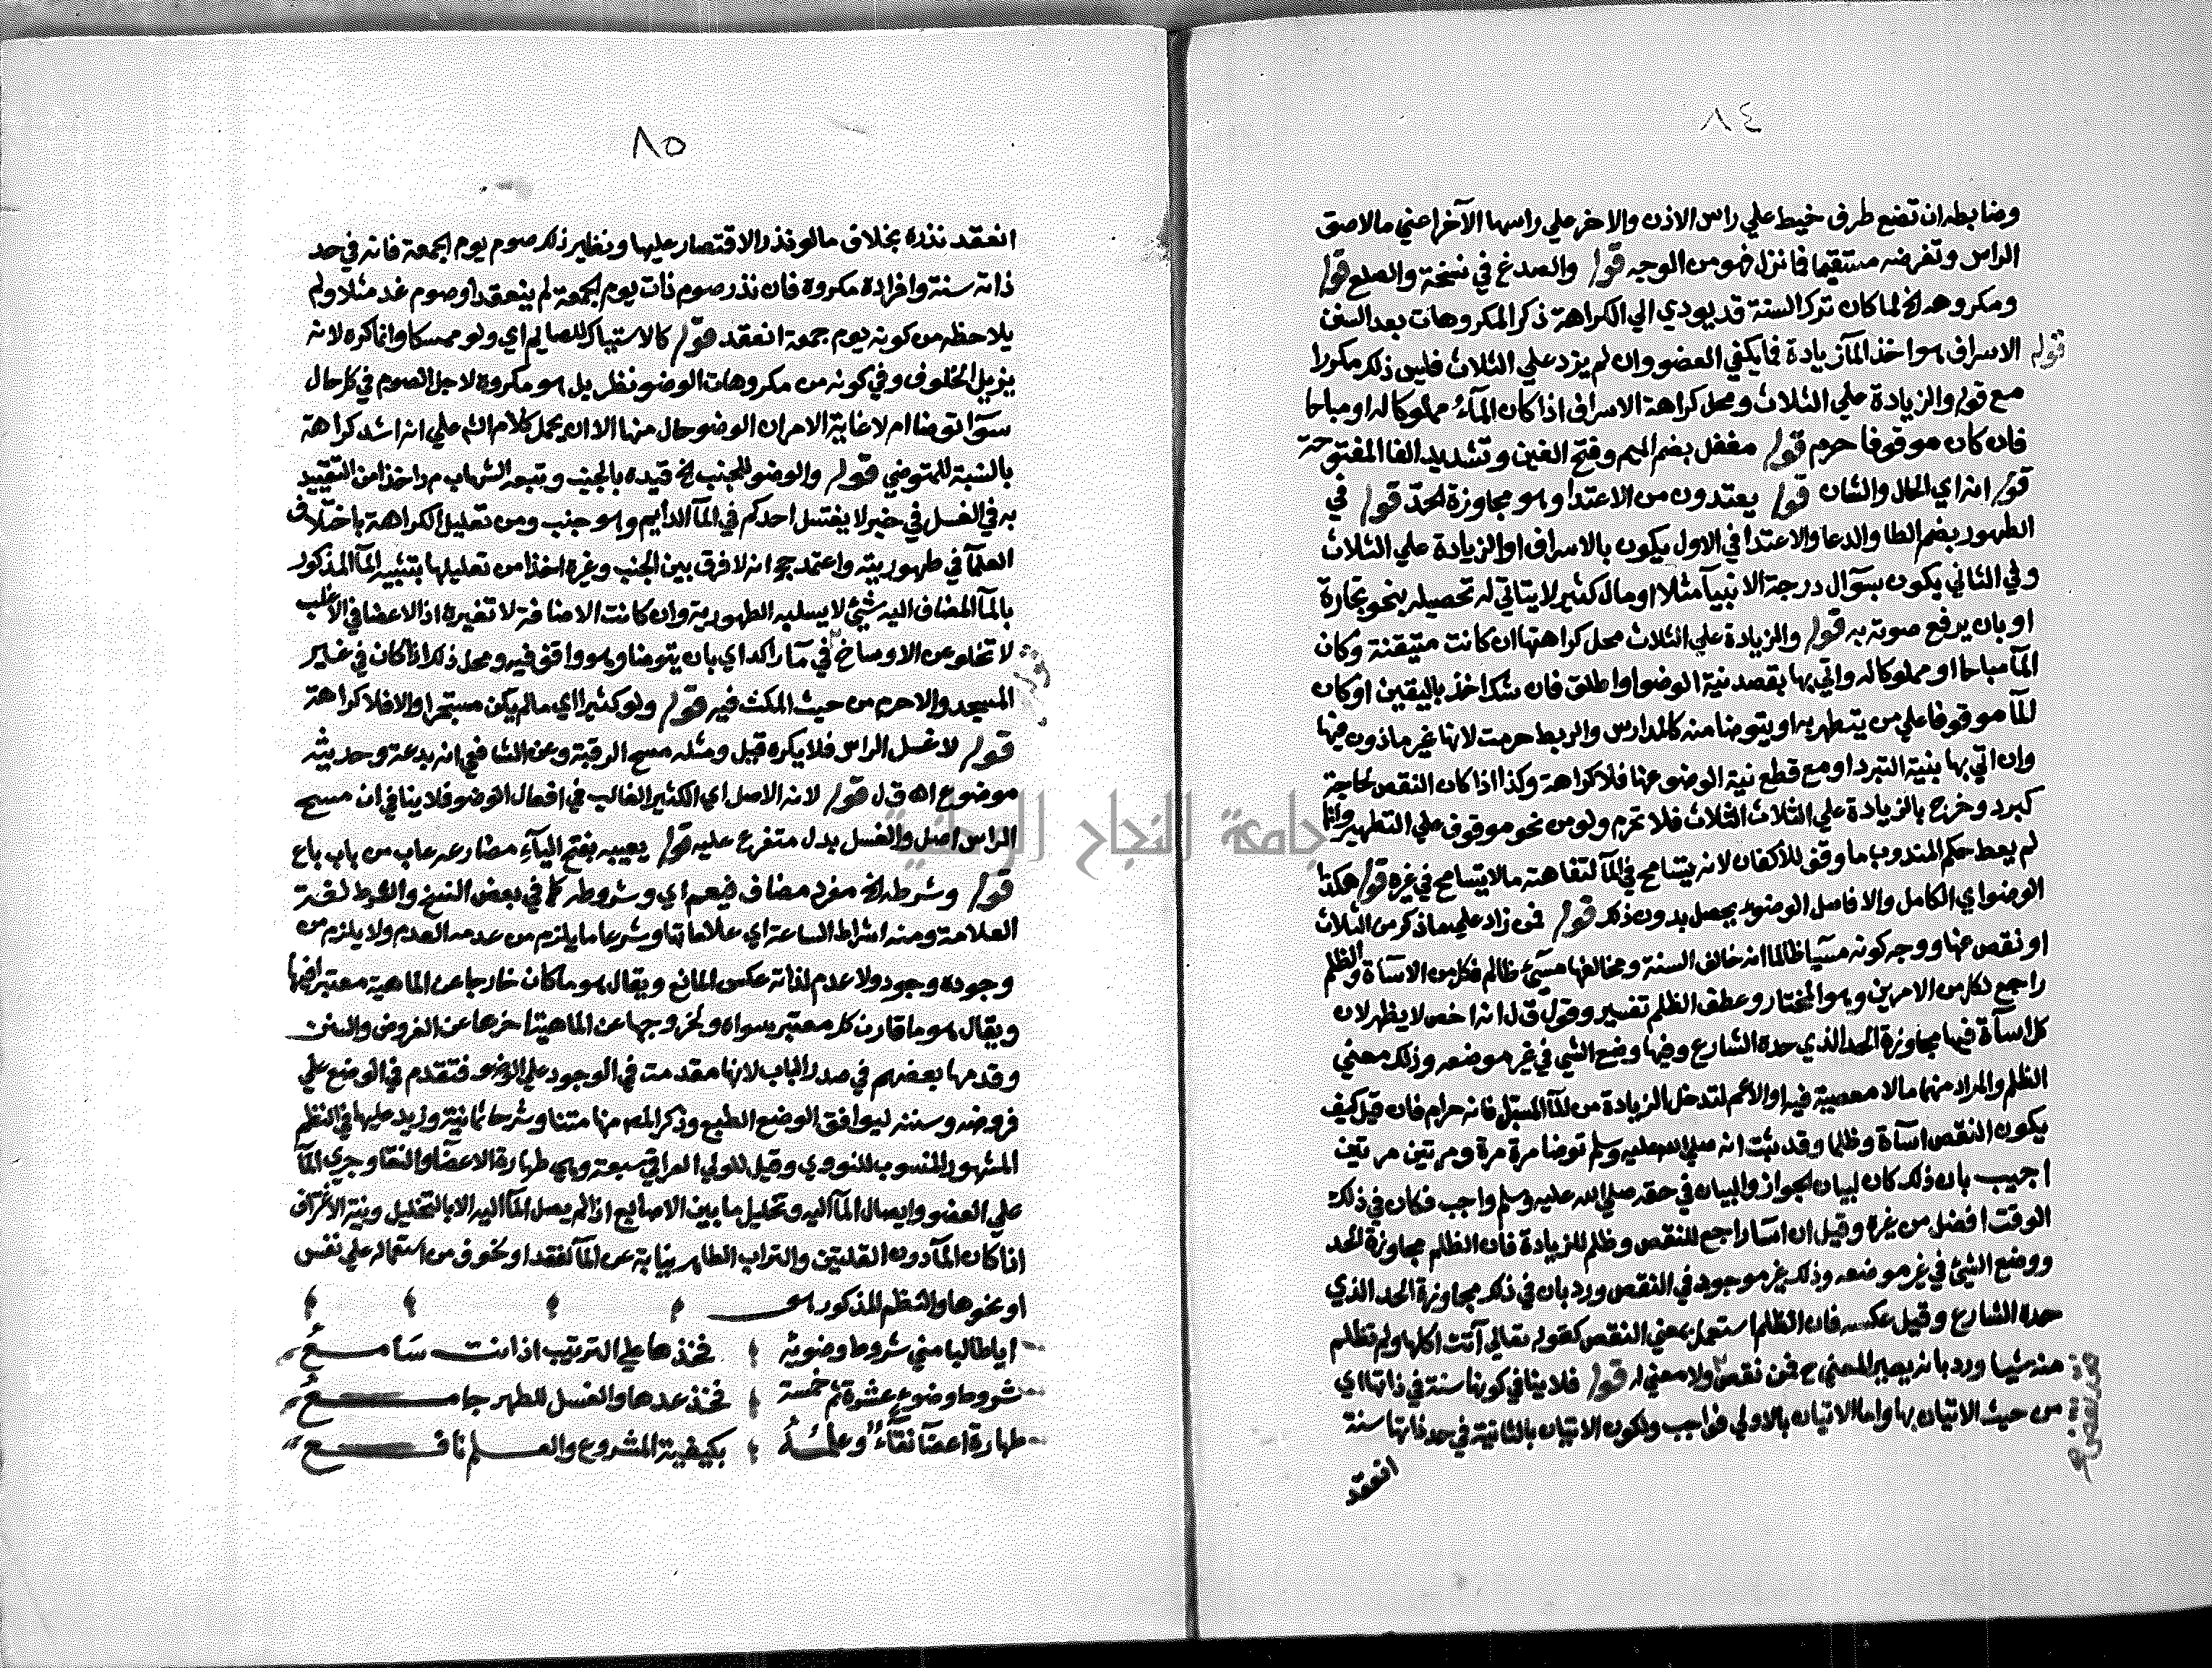 ٨٤
وضابطه ان تضع طرف خيط علي راس الاذن والاخر علي راسها الآخر اعني مالاصق
الراس وتفرضه مستقيما فانزل فهو من الوجه قوله والصدغ في نسخة والصلع قوله
ومكروهه الخ لما كان ترك السنة قد يودي الي الكراهة ذكر المكروهات بعد السنن
قوله الاسراف هو اخذ المآ زيادة فما يكفي العضو وان لم يزد علي الثلاث فليس ذكره مكررا
مع قوله والزيادة علي الثلاث ومحل كراهة الاسراف اذا كان المآء مملوكا له او مباحا
فان كان موقوفا حرم قوله مغفل بضم الميم وفتح الغين وتشديد الفا المفتوحة
قوله انه اي الحال والشان قوله يعتدون من الاعتدا وهو مجاوزة الحد قوله في
الطهور بضم الطا والدعا والاعتدا في الاول يكون بالاسراف او الزيادة علي الثلاث
وفي الثاني يكون بسوآل درجة الانبيآ مثلا او مال كثير لا يتاتي له تحصيله بنحو تجارة
او بان يرفع صوته به قوله والزيادة علي الثلاث محل كراهتها ان كانت متيقنة وكان
المآ مباحا او مملوكا له واتي بها بقصد نية الوضو او اطلق فان شك اخذ باليقين او كان
المآ موقوفا علي من يتطهر به او يتوضا منه كالمدارس والربط حرمت لانها غير ماذون فيها
وان اتي بها بنية التبرد او مع قطع نية الوضو عنها فلا كراهة وكذا اذا كان النقص لحاجة
كبرد وخرج بالزيادة علي الثلاث الثلاث فلا تحرم ولو من نحو موقوف علي التطهير وانما
لم يعط حكم المندوب ما وقف للاكفان لانه يتسامح في المآ لتفاهته مالا يتسامح في غيره قوله هكذا
الوضو اي الكامل والا فاصل الوضوء يحصل بدون ذلك قوله فمن زاد علي ما ذكر من الثلاث
او نقص عنها ووجه كونه مسيآ ظالما انه خالف السنة ومخالفها مسئ ظالم فكل من الاسآة والظلم
راجع لكل من الامرين وهو المختار وعطف الظلم تفسير وقول ق ل انه اخص لا يظهر لان
كل اسآة فيها مجاوزة الحد الذي حده الشارع وفيها وضع الشي في غير موضعه وذلك معني
الظلم والمراد منهما مالا معصية فيه او الاعم لتدخل الزيادة من المآ المسبل فانه حرام فان قيل كيف
يكون النقص اسآة وظلما وقد ثبت انه صلي الله عليه وسلم توضا مرة مرة ومرتين مرتين
اجيب بان ذلك كان لبيان الجواز والبيان في حقه صلي الله عليه وسلم واجب فكان في ذلك
الوقت افضل من غيره وقيل ان اسآ راجع للنقص وظلم للزيادة فان الظلم مجاوزة الحد
ووضع الشئ في غير موضعه وذلك غير موجود في النقص ورد بان في ذلك مجاوزة الحد الذي
حده الشارع وقيل عكسه فان الظلم استعمل بمعني النقص كقوله تعالي آتت اكلها ولم تظلم
منه شيا ورد بانه يصير المعني ح فمن نقص ولا معني له قوله فلا ينافي كونها سنة في ذاتها اي
من حيث الاتيان بها واما الاتيان بالاولي فواجب ولكون الاتيان بالثانية في حد ذاتها سنة
انعقد
٨٥
انعقد نذره بخلاف مالو نذر الاقتصار عليها ونظير ذلك صوم يوم الجمعة فانه في حد
ذاته سنة وافراده مكروه فان نذر صوم ذات يوم الجمعة لم ينعقد او صوم غد مثلا ولم
يلاحظه من كونه يوم جمعة انعقد قوله كالاستياك للصايم اي ولو ممسكا وانما كره لانه
يزيل الخلوف وفي كونه من مكروهات الوضو نظر بل هو مكروه لاجل الصوم في كل حال
سوآ توضا ام لا غاية الامر ان الوضو حال منها الا ان يحمل كلام الش علي انه اشد كراهة
بالنسبة للمتوضي قوله والوضو للجنب الخ قيده بالجنب وتبعه الشهاب م ر اخذا من التقييد
به في الغسل في خبر لا يغتسل احدكم في المآ الدايم وهو جنب ومن تعليل الكراهة باختلاف
العلمآ في طهوريته واعتمد حج انه لا فرق بين الجنب وغيره اخذا من تعليلها بتشبيه المآ المذكور
بالمآ المضاف اليه شئ لا يسلبه الطهورية وان كانت الاضافة لا تغيره اذ الاعضا في الاغلب
لا تخلو عن الاوساخ قوله في مآ راكد اي بان يتوضا وهو واقف فيه ومحل ذلك اذا كان في غير
المسجد والا حرم من حيث المكث فيه قوله ولو كثيرا اي مالم يكن مستبحرا والا فلا كراهة
قوله لا غسل الراس فلا يكره قيل ومثله مسح الرقبة وعن الشافعي انه بدعة وحديثه
موضوع اه ق ل قوله لانه الاصل اي الكثير الغالب في افعال الوضو فلا ينافي ان مسح
الراس اصل والغسل بدل متفرع عليه قوله يعيبه بفتح اليآء مضارعه عاب من باب باع
قوله وشرطه الخ مفرد مضاف فيعم اي وشروطه كما في بعض النسخ والشرط لغة
العلامة ومنه اشراط الساعة اي علاماتها وشرعا ما يلزم من عدمه العدم ولا يلزم من
وجوده وجود ولا عدم لذاته عكس المانع ويقال هو ما كان خارجا عن الماهية معتبرا فيها
ويقال هو ما قارن كل معتبر سواه ولخروجها عن الماهية اخرها عن الفروض والسنن
وقدمها بعضهم في صدر الباب لانها مقدمة في الوجود علي الوضو فتقدم في الوضع علي
فروضه وسننه ليوافق الوضع الطبع وذكر المص منها متنا وشرحا ثمانية وزيد عليها في النظم
المشهور المنسوب للنووي وقيل للولي العراقي سبعة وهي طهارة الاعضآ والنقا وجري المآ
علي العضو وايصال المآ اليه وتخليل ما بين الاصابع اذا لم يصل المآ اليه الا بالتخليل ونية الاغتراف
اذا كان المآ دون القلتين والتراب الطاهر نيابة عن المآ لفقد او لخوف من استعماله علي نفس
او نحوها والنظم المذكور هو
ايا طالبا مني شروط وضوئه فخذها علي الترتيب اذ انت سَامعُ
شروط وضوء عشرة ثم خمسة فخذ عدها والغسل للطهر جامعُ
طهارة اعضآ نقآءٌ وعلمه بكيفية المشروع والعلم نافع